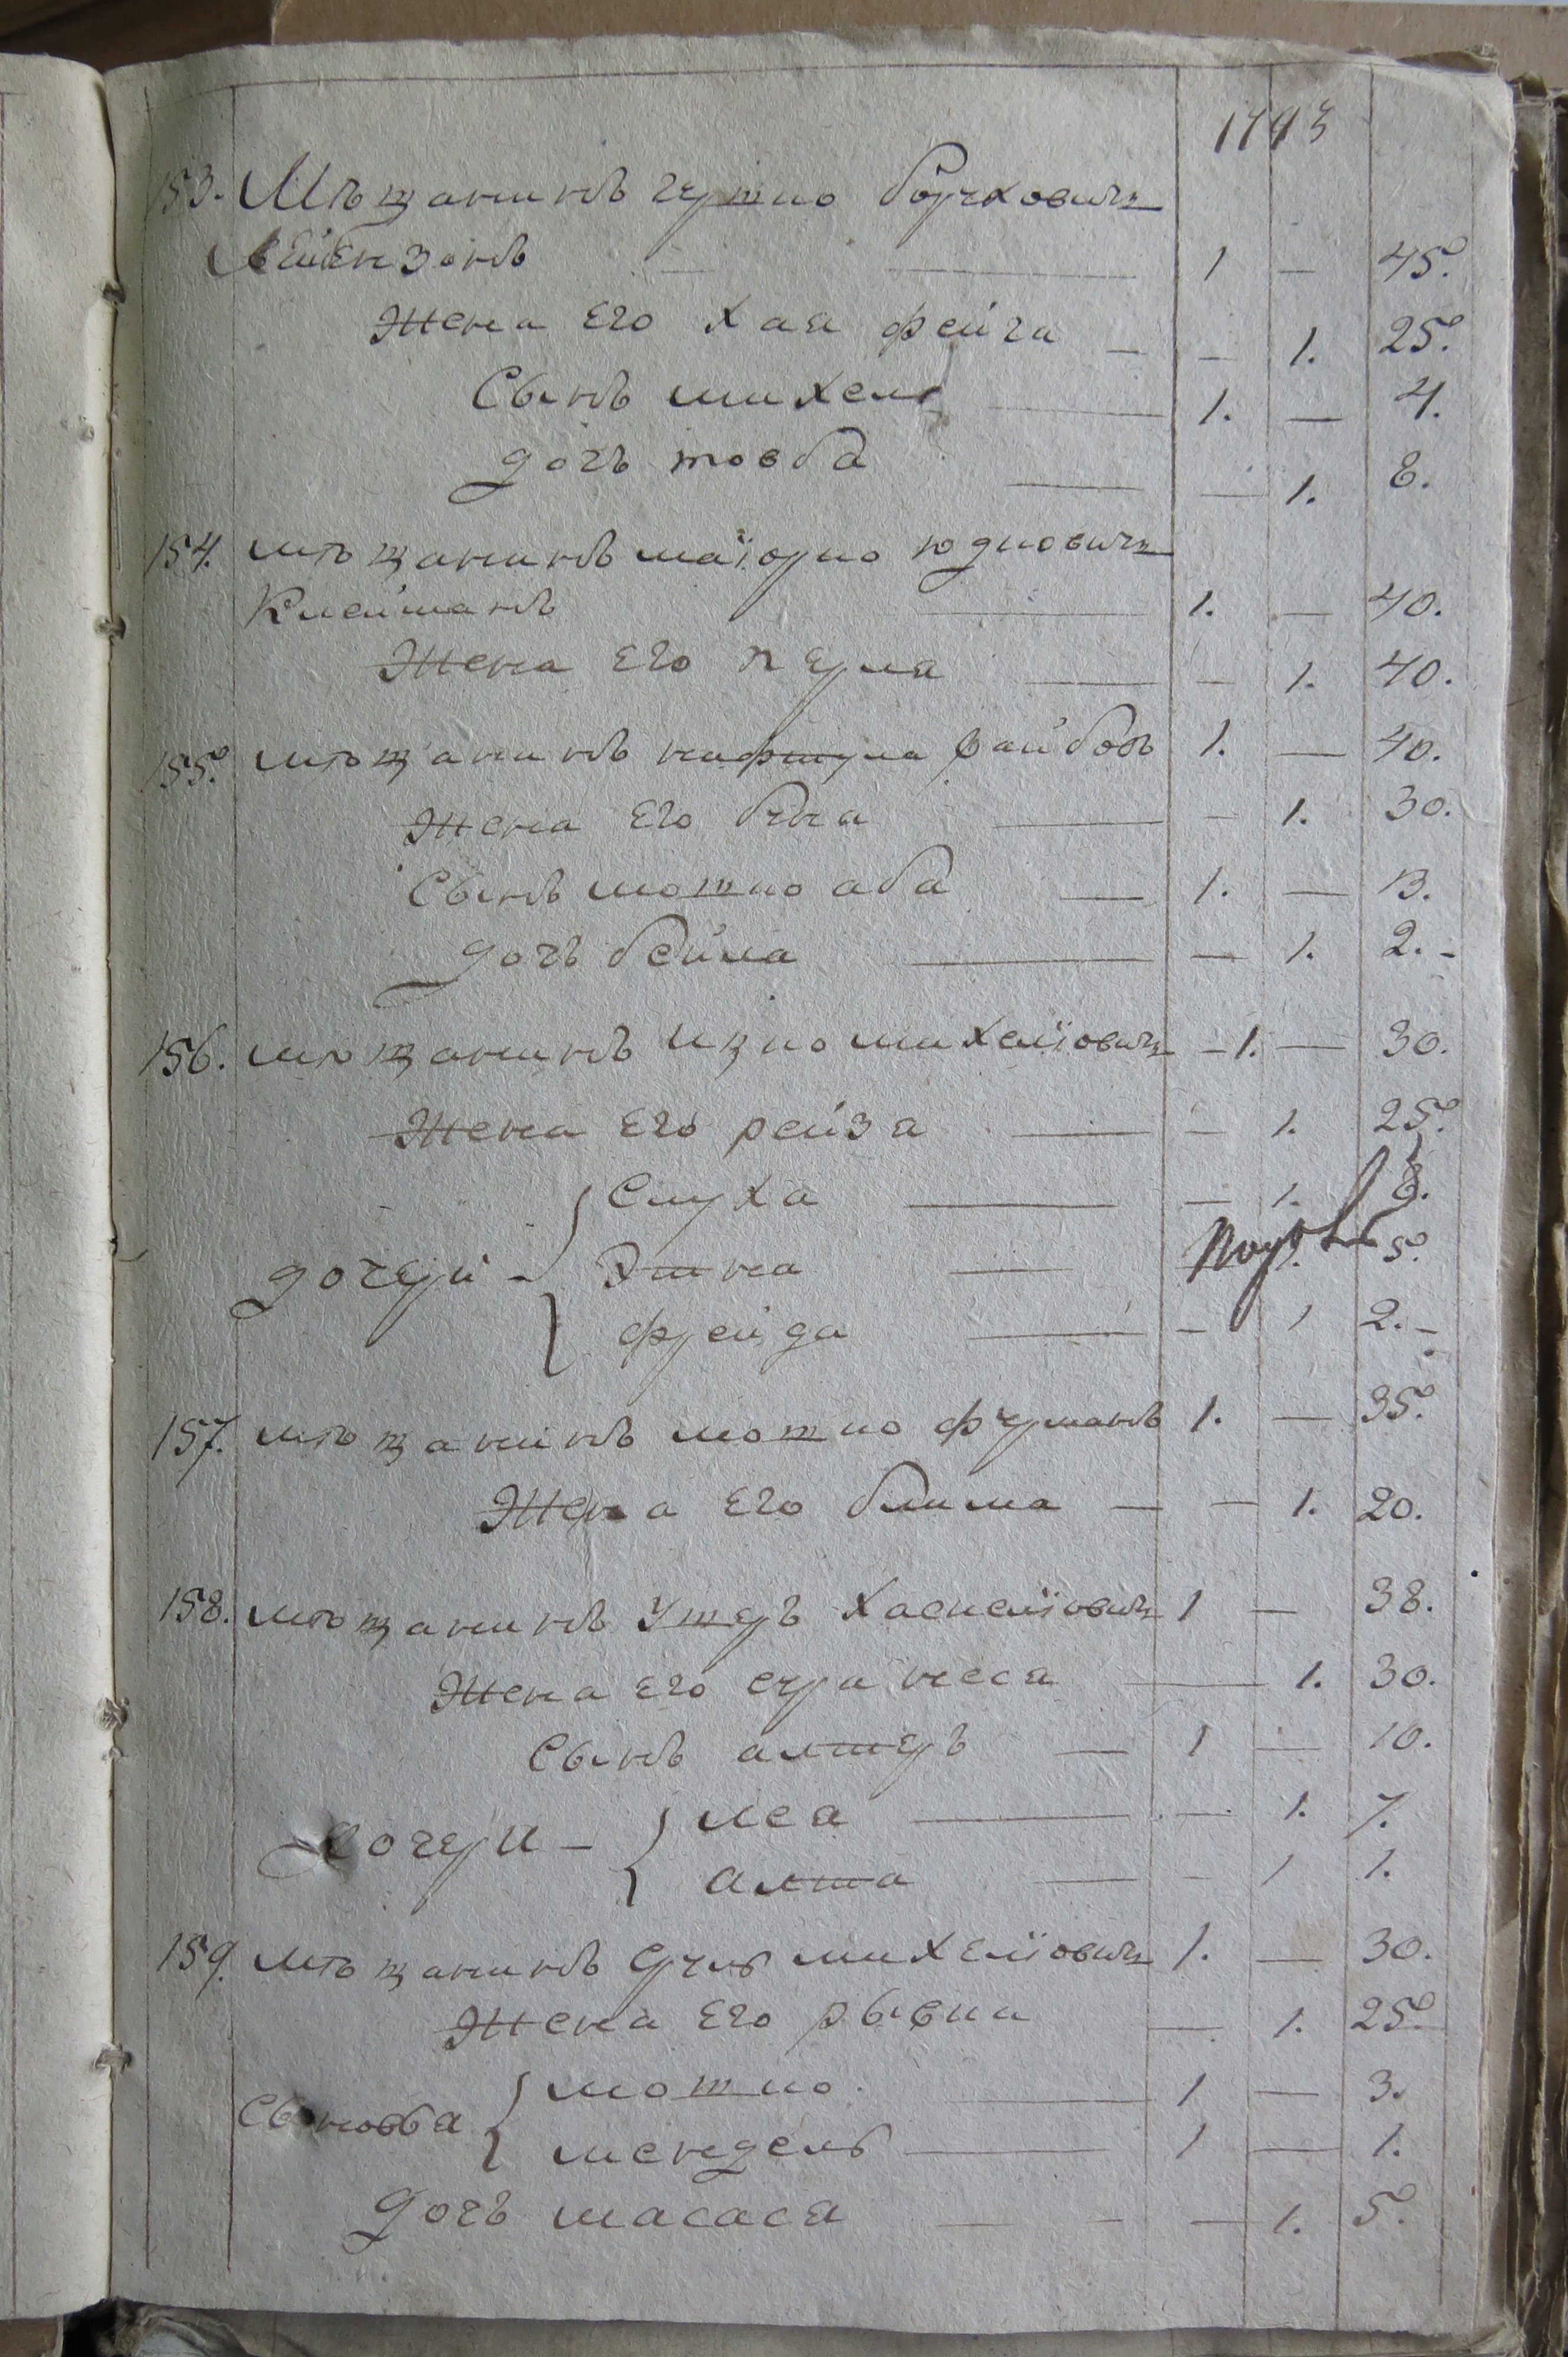 1793
153. Мѣщанинъ гутко борухович
Лейбензонъ — 1 — 45.
Жена Его Хая фейга — — 1. 25.
Сынъ михель — 1. — 4.
дочь товба — — 1. 8.
154. мѣщанинъ маіорко юдкович
Клейманъ — 1. — 40.
Жена Его перла — — 1. 40.
155. мѣщанинъ нафтула вайбовъ 1. — 40.
Жена Его буна — — 1. 30.
Сынъ мотко аба — 1. — 13.
дочь бейла — — 1. 2. -
156. мѣщанинъ Ицко михеліович - 1. — 30.
Жена Его рейза — — 1. 25.
Слуха — — 1. 8.
дочери - Этна — 1. 5.
фрейда — — 1 2. -
157. мѣщанинъ мотко фурманъ 1. — 35.
Жена Его блима — — 1. 20.
158. мѣщанинъ Ушеръ Хаскеліович 1 — 38.
Жена Его сура неся — 1. 30.
Сынъ алтеръ — 1 — 10.
Дочери — лея — — 1. 7.
алта — - 1 1.
159. мѣщанинъ Сруль михеліович 1. — 30.
Жена Его рывка — 1. 25.
мотко. — 1 — 3.
Сыновья мендель — 1 — 1.
Дочь масася — - — 1. 5.